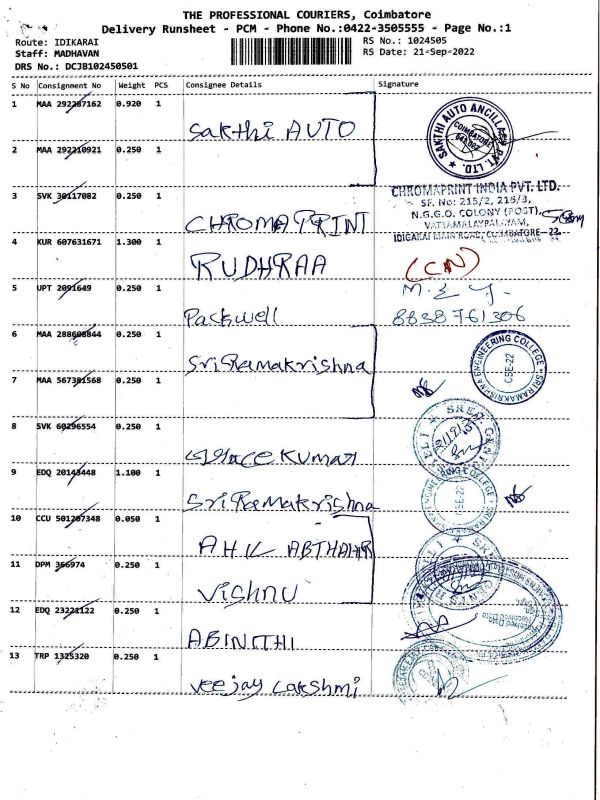 THE PROFESSIONAL COURIERS, Coimbatore
Delivery Runsheet - PCM - Phone No.:0422-3505555 - Page No.:1
Route: IDIKARAI RS No.: 1024505
Staff: MADHAVAN RS Date: 21-Sep-2022
DRS No.: DCJB102450501
S No Consignment No Weight PCS Consignee Details Signature
1 MAA 292207162 0.920 1
Sakthi AUTO
SAKTHI AUTO ANCILLARY PVT. LTD.
COIMBATORE
2 MAA 292210921 0.250 1
3 SVK 30117082 0.250 1
CHROMA PRINT
CHROMAPRINT INDIA PVT. LTD.
SF. No: 215/2, 216/3,
N.G.G.O. COLONY (POST),
VATTAMALAYPALAYAM,
IDIGARAI MAIN ROAD, COIMBATORE-22
4 KUR 607631671 1.300 1
RUDHRAA (CN)
5 UPT 2091649 0.250 1
Packwell 8838761306
6 MAA 288608844 0.250 1
Sri Ramakrishna
SRI RAMAKRISHNA ENGINEERING COLLEGE
CBE-22
7 MAA 567381568 0.250 1
8 SVK 60296554 0.250 1
Kumar
9 EDQ 20143448 1.100 1
Sri Ramakrishna
ENGINEERING COLLEGE
CBE-22
10 CCU 501207348 0.050 1
11 DPM 366974 0.250 1
Vishnu
12 EDQ 23221122 0.250 1
ABINITHI
13 TRP 1325320 0.250 1
Veejay Lakshmi